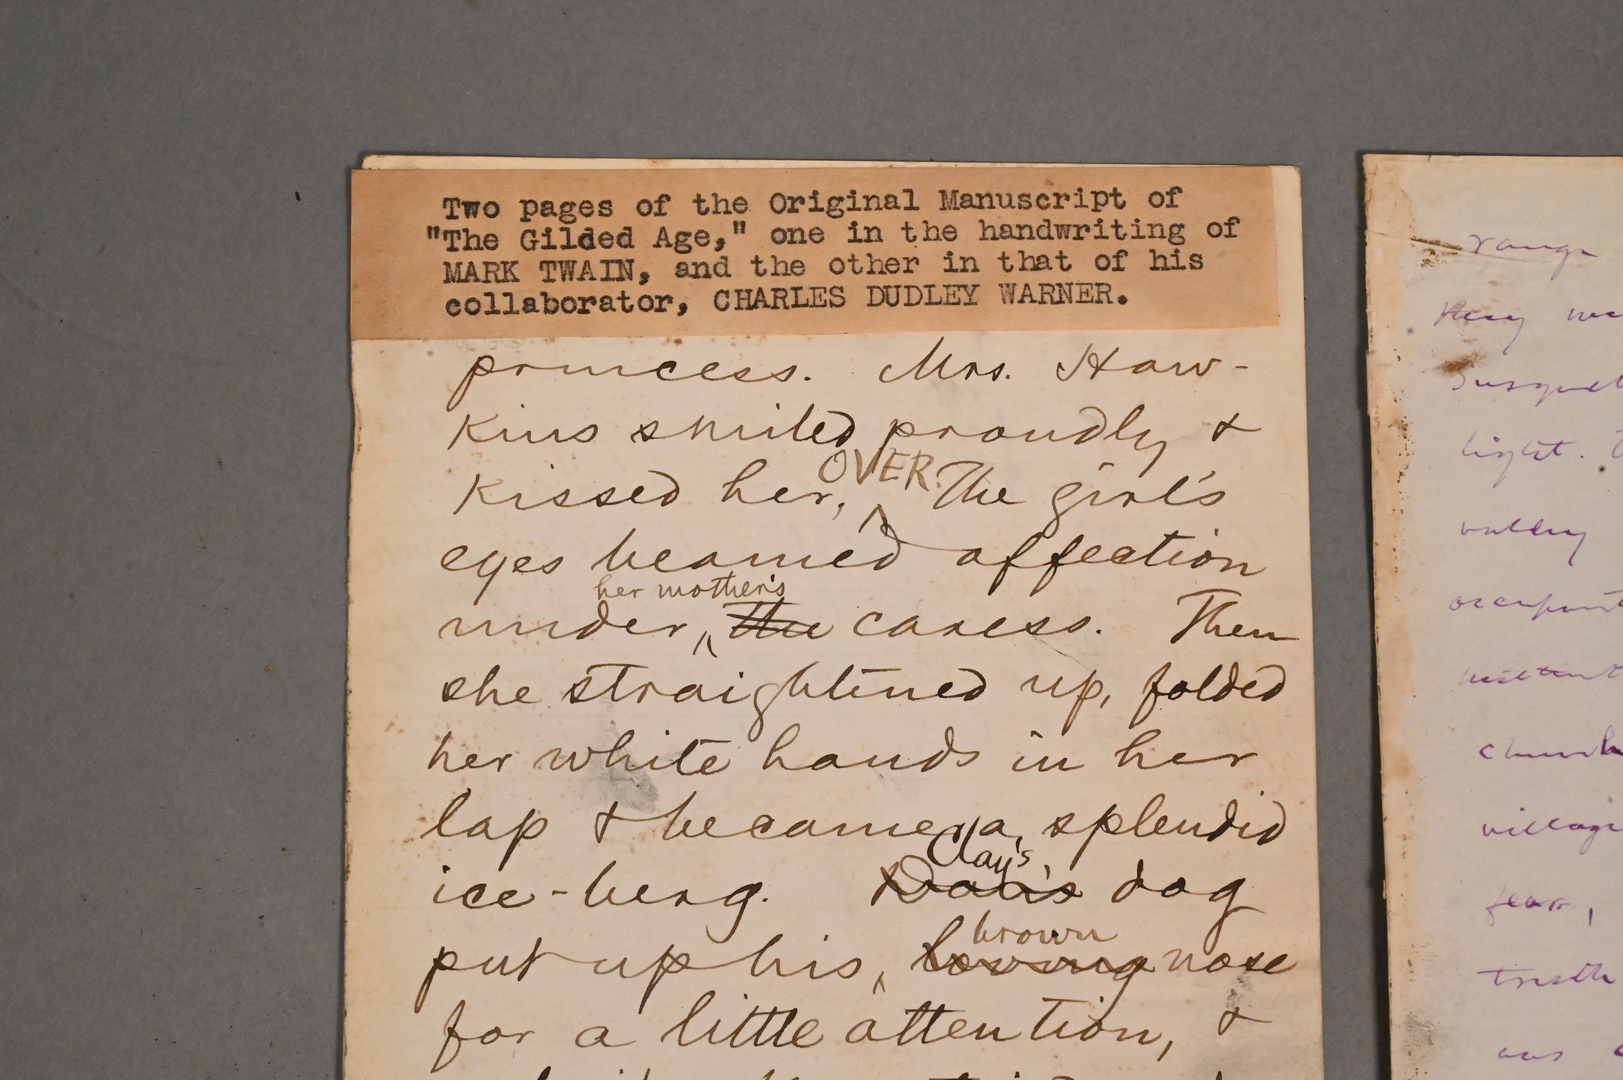 Two pages of the Original Manuscript of
"The Gilded Age," one in the handwriting of
MARK TWAIN, and the other in that of his
collaborator, CHARLES DUDLEY WARNER.
princess. Mrs. Haw-
kins smiled proudly &
OVER.
kissed her, The girl's
eyes beamed affection
her mother's
under, the caress. Then
she straightened up, folded
her white hands in her
lap & became a splendid
Clay's
ice-berg. Dan's dog
brown
put up his loving nose
for a little attention, &
range
they
light.
valley
village
fear,
was